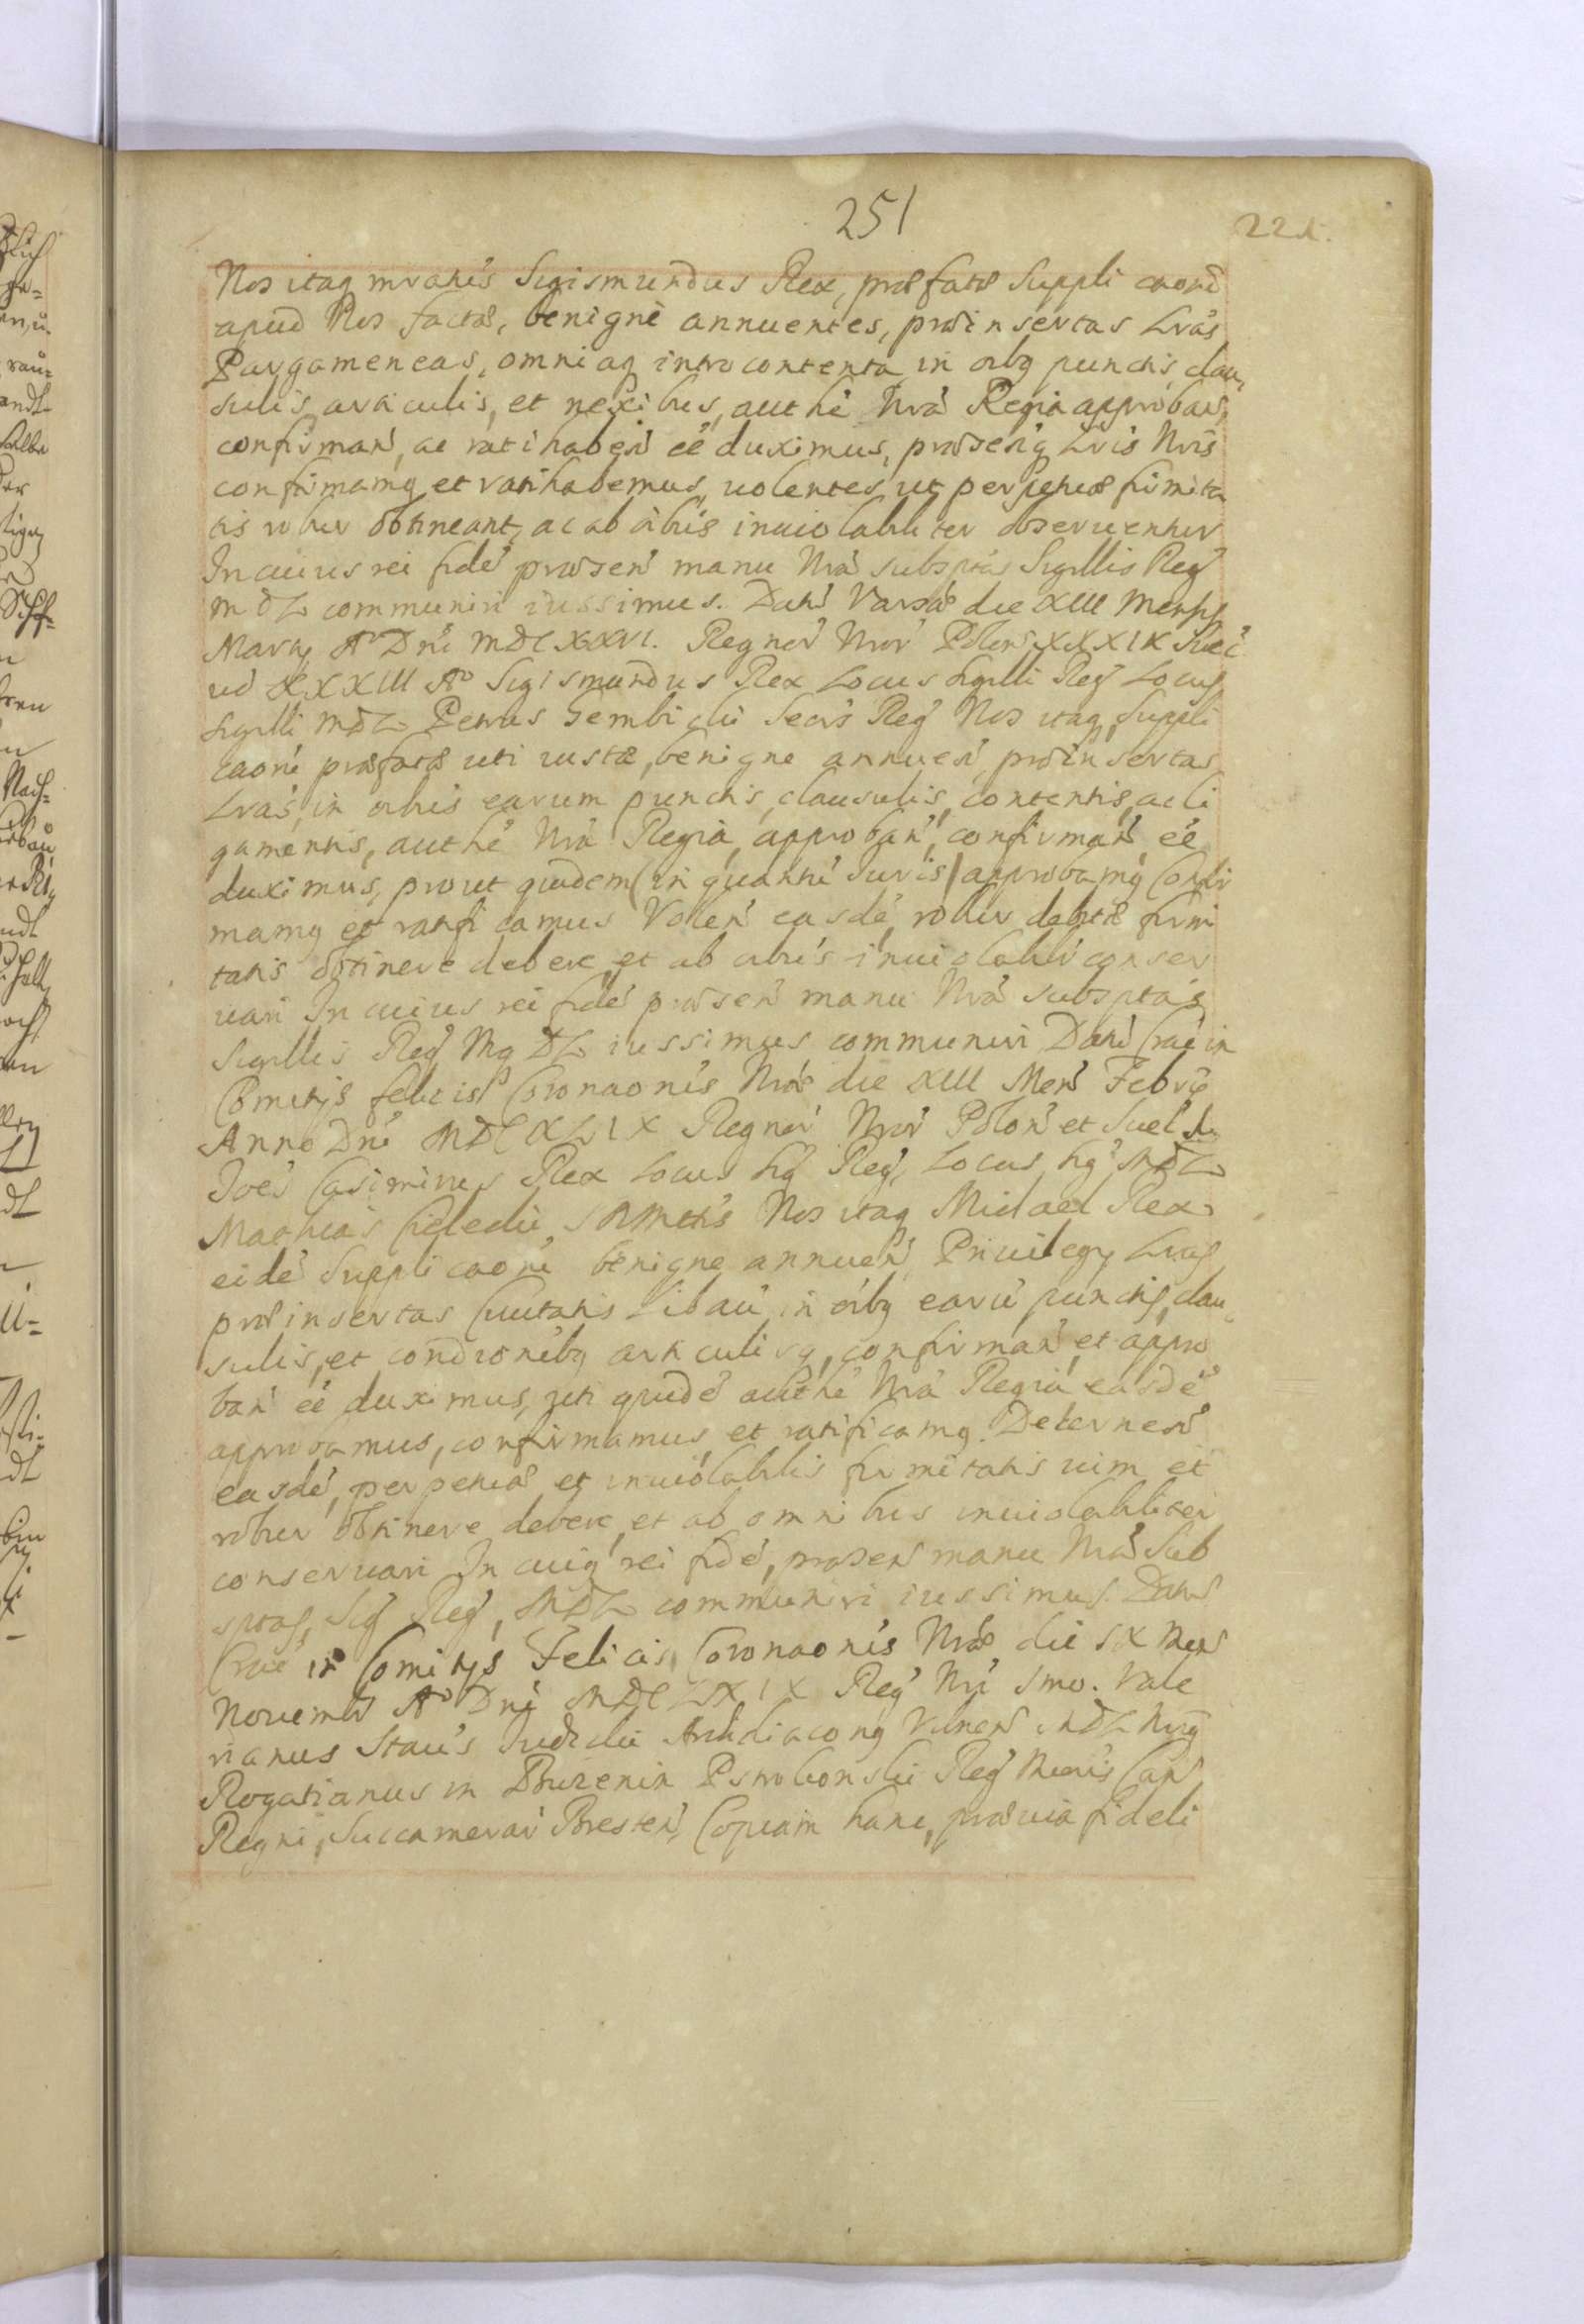 251
221.
Nos itaq mranis Sigismundus Rex, præfatæ Suppli caoni
apud Nos factæ, benignè annuentes, præinsertas Lras
Pargameneas, omniaq intro contenta in oibq punctis, clau,
sulis, articulis, et nexibus, authe Nrâ Regiâ approban,
confirman, ac ratihaben eê duximus, præsentiq Lris Nris
confirmamq et ratihabemus, uolentes ut perpetuæ firmita
tis robur obtineant, ac ab oibus inuiolabiliter obseruentur
In cuius rei fidê præsen manu Nrâ subsptas Sigillis Reg
M D L communiri iussimus. Datt Varsæ die XIII Mensis
Marty Aº Dni MDCXXVI. Regnor Nror Polon XXXIX Suec
uo XXXIII Aº Sigismundus Rex Locus Sigilli Reg Locus
Sigilli MDL Petrus Gembicki Secrs Reg Nos itaq Suppli
caoni præfatæ uti iustæ, benigne annuen, præinsertas
Lras, in oibus earum punctis, clausulis, contentis, ac li
gamentis, authe Nrâ Regiâ, approban, confirman eê
duximus, prout quidem (in quantû Iuris) approbamq Confir
mamq et ratifi camus Volen easdê robur debitæ firmi
tatis obtinere debere et ab oibus inuiolabir conser
uari In cuius rei fidê præsen manu Nrâ subsptas
Sigillis Reg Mg DL iussimus communiri Datt Crac in
Comitijs felicis Coronaonis Nræ die XIII Mens Febrij
Anno Dni MDCXLIX Regnor Nror Polon et Suec I.
Ioes Casimirus Rex Locus Sig Reg, Locus Sig MDL
Mathias Nos itaq Michael Rex
eidê Supplicaoni benigne annuen Priuilegy Lras
præinsertas Ciuitatis Libau, in oibq earû punctis, clau,
sulis, et condionibq articulisq, confirman et appro
ban eê duximus, uti quidê authe Nrâ Regiâ easdê
approbamus, confirmamus et ratificamq. Decernen
easdê, perpetuæ et inuiolabilis firmitatis uim et
robur obtinere debere et ab omnibus inuiolabiliter
conseruari In cuiq rei fidê, præsen manu Nrâ Sub
sptas, Sig Reg, MDL communiri iussimus. Datt
Crac in Comitijs Felicis Coronaonis Nræ die IX Mens
Nouembr Aº Dni MDCLXIX Reg Nri Imo. Vale
rianus Staus Iudicki Archidiaconq Vilnen MDL
Rogatianus in Bruzenin Pstrokonski Reg Can
Regni, Succamerar Bresten, Copiam hanc, præuiâ fideli